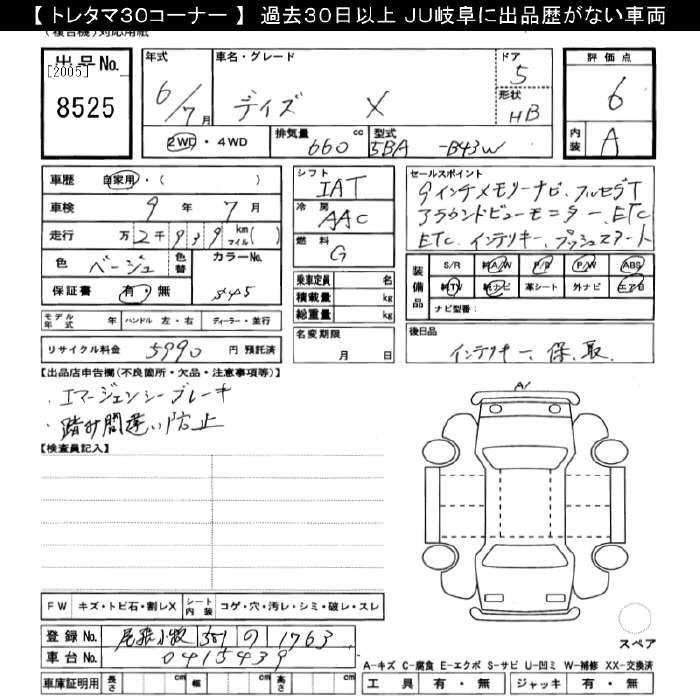 【 トレタマ30コーナー 】 過去30日以上 JU岐阜に出品歴がない車両
(複合機)対応用紙
出品No. [2005] 8525
年式 6/7月
車名・グレード デイズ X
ドア 5
形状 HB
評価点 6
内装 A
2WD・4WD
排気量 660 cc
型式 5BA -B43W
車歴 自家用・( )
車検 9 年 7 月
走行 万 2 千 9 3 9 km マイル( )
色 ベージュ 色替 カラーNo. S45
保証書 有・無
モデル年式 年 ハンドル 左・右 ディーラー・並行
リサイクル料金 5990 円 預託済
シフト IAT
冷房 AAC
燃料 G
乗車定員 名
積載量 kg
総重量 kg
名変期限 月 日
セールスポイント
9インチメモリーナビ、フルセグT
アラウンドビューモニター、ETC
ETC、インテリキー、プッシュスタート
装備品 S/R 純A/W P/S P/W ABS
純TV 純ナビ 革シート 外ナビ エアB
ナビ型番:
後日品
インテリキー、保、取
【出品店申告欄(不良箇所・欠品・注意事項等)】
・エマージェンシーブレーキ
・踏み間違い防止
【検査員記入】
A1
FW キズ・トビ石・割レX シート内装 コゲ・穴・汚レ・シミ・破レ・スレ
登録No. 尾張小牧 581 の 1763
車台No. 0415439
車庫証明用 長さ cm 幅 cm 高さ cm
スペア
A-キズ C-腐食 E-エクボ S-サビ U-凹ミ W-補修 XX-交換済
工具 有・無 ジャッキ 有・無